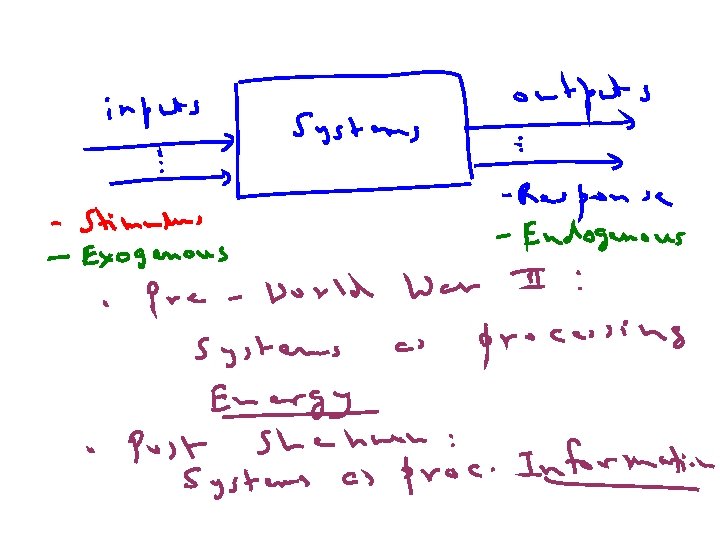 inputs
Systems
outputs
- Stimulus
- Exogenous
- Response
- Endogenous
• Pre - World War II :
Systems as processing
Energy
• Post Shannon :
Systems as proc. Information